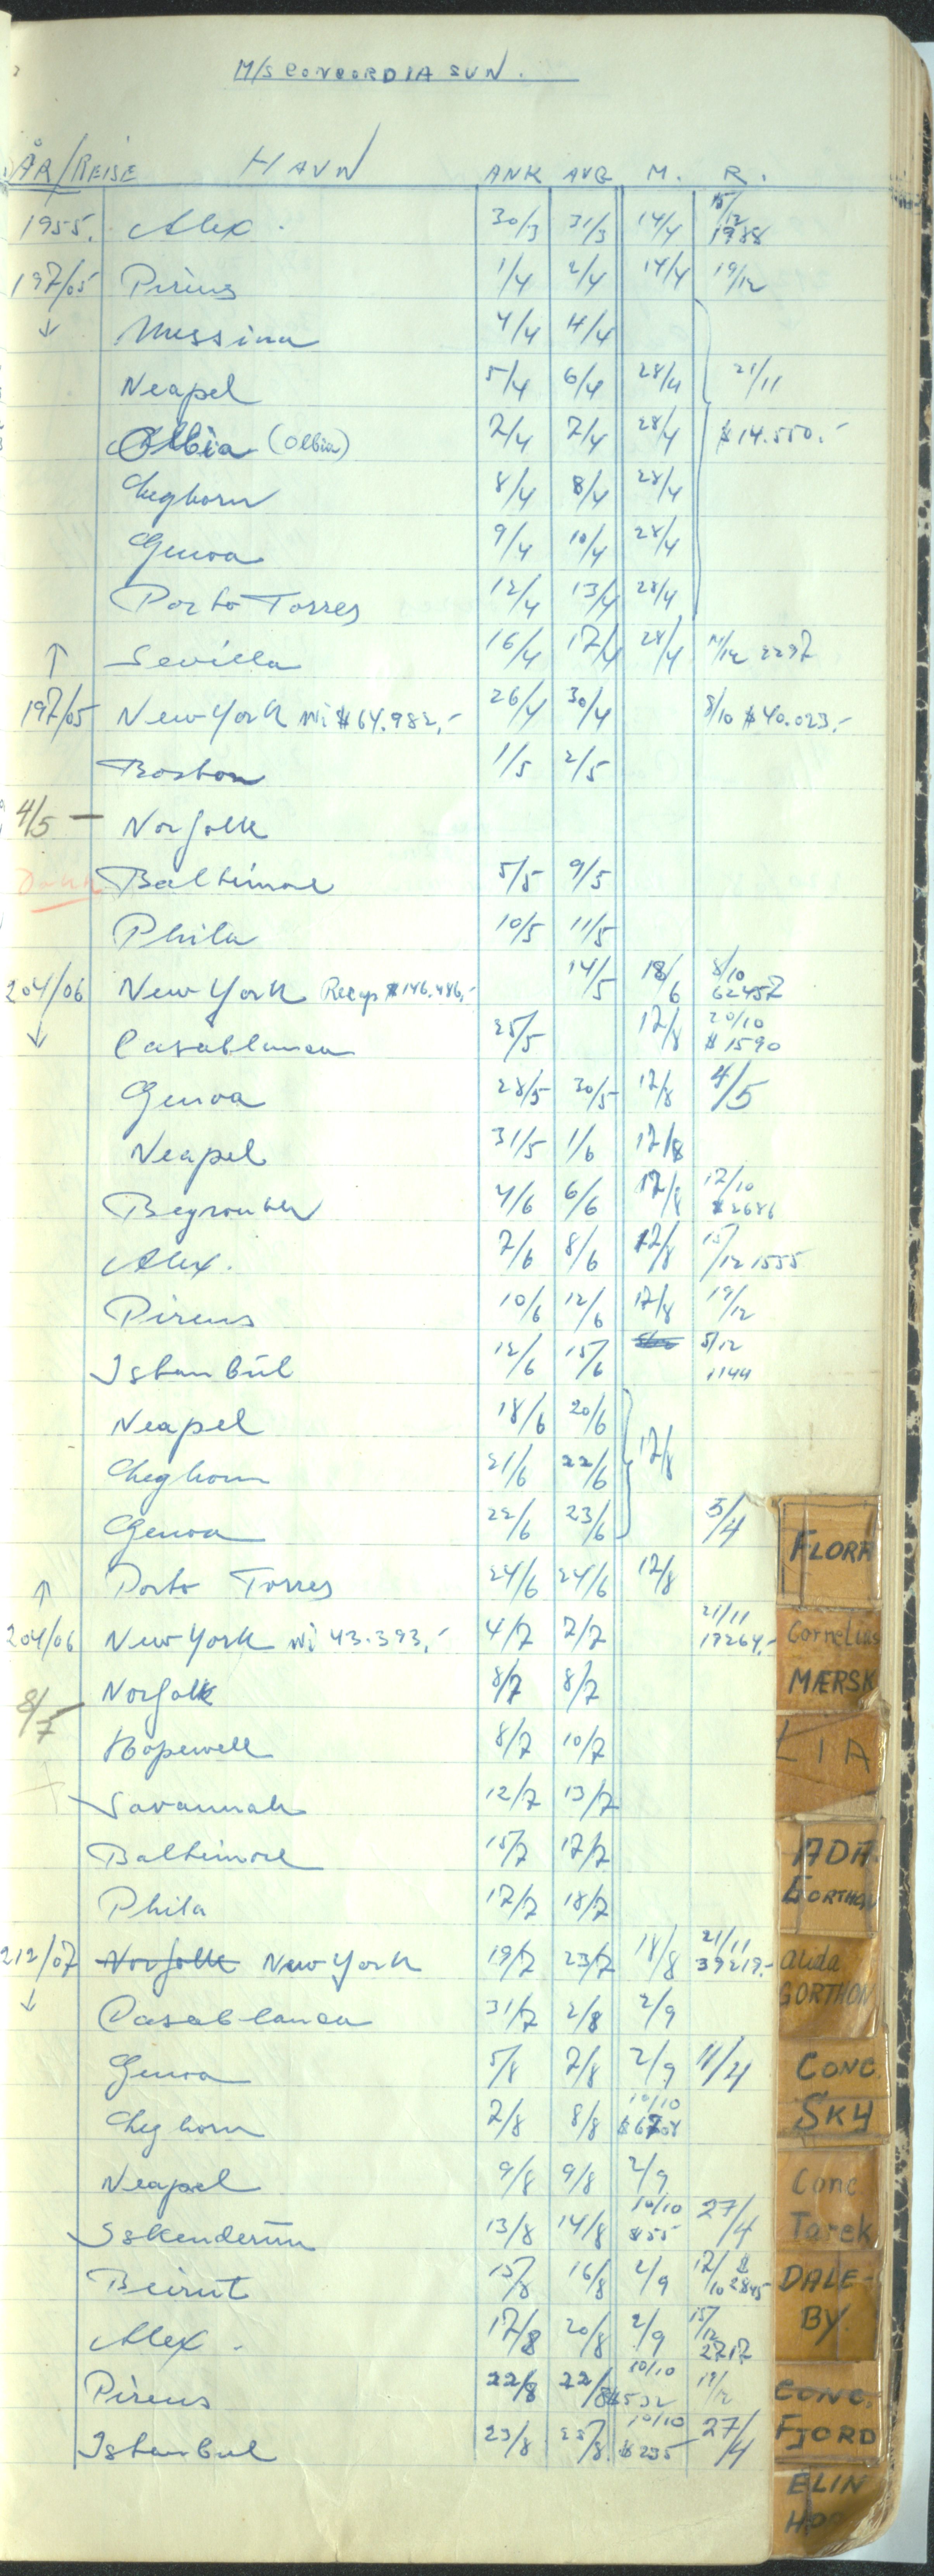 M/S CONCORDIA SUN.
ÅR/REISE HAVN ANK AVG M. R.
1955. Alex. 30/3 31/3 14/4 15/12 1988
197/05 Pireus 1/4 2/4 14/4 19/12
↓ Messina 4/4 4/4
Neapel 5/4 6/4 28/4 21/11
Olbia (Olbia) 7/4 7/4 28/4 $14.550.-
Leghorn 8/4 8/4 28/4
Genoa 9/4 10/4 28/4
Porto Torres 12/4 13/4 28/4
↑ Sevilla 16/4 17/4 28/4 2297
197/05 New York mi $64.982,- 26/4 30/4 8/10 $40.023,-
Boston 1/5 2/5
4/5 — Norfolk
Baltimore 5/5 9/5
Phila 10/5 11/5
204/06 New York Recap $146.486,- 14/5 18/6 8/10 62457
↓ Casablanca 25/5 17/8 20/10 $1590
Genoa 28/5 30/5 17/8 4/5
Neapel 31/5 1/6 17/8
Beyrouth 4/6 6/6 17/8 17/10 $2686
Alex. 7/6 8/6 17/8 15/12 1555
Pireus 10/6 12/6 17/8 19/12
Istanbul 12/6 15/6 5/12 1144
Neapel 18/6 20/6
Leghorn 21/6 22/6 17/8
Genoa 22/6 23/6 5/4
↑ Porto Torres 24/6 24/6 17/8
204/06 New York mi 43.393,- 4/7 7/7 21/11 17264,-
Norfolk 8/7 8/7
8/7 Hopewell 8/7 10/7
Savannah 12/7 13/7
Baltimore 15/7 17/7
Phila 17/7 18/7
212/07 Norfolk New York 19/7 23/7 18/8 21/11 39219.-
↓ Casablanca 31/7 2/8 2/9
Genoa 5/8 7/8 2/9 11/4
Leghorn 7/8 8/8 10/10
Neapel 9/8 9/8 2/9
Iskenderun 13/8 14/8 10/10 $55 27/4
Beirut 15/8 16/8 2/9 17/10 $2845
Alex. 17/8 20/8 2/9 15/12 2717
Pireus 22/8 22/8 10/10 $532 19/12
Istanbul 23/8 25/8 10/10 $235 27/4
FLORA
Cornelius
MÆRSK
LIA
ADA
GORTHON
Alida
GORTHON
CONC.
SKY
Conc
Tarek
DALE-
BY
CONC.
FJORD
ELIN